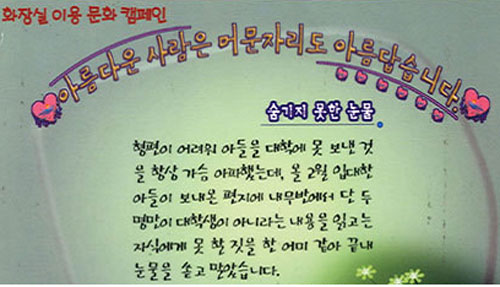 화장실 이용 문화 캠페인
아름다운 사람은 머문자리도 아름답습니다.
숨기지 못한 눈물
형편이 어려워 아들을 대학에 못 보낸 것
을 항상 가슴 아파했는데, 올 2월 입대한
아들이 보내온 편지에 내무반에서 단 두
명만이 대학생이 아니라는 내용을 읽고는
자식에게 못 할 짓을 한 어미 같아 끝내
눈물을 쏟고 말았습니다.